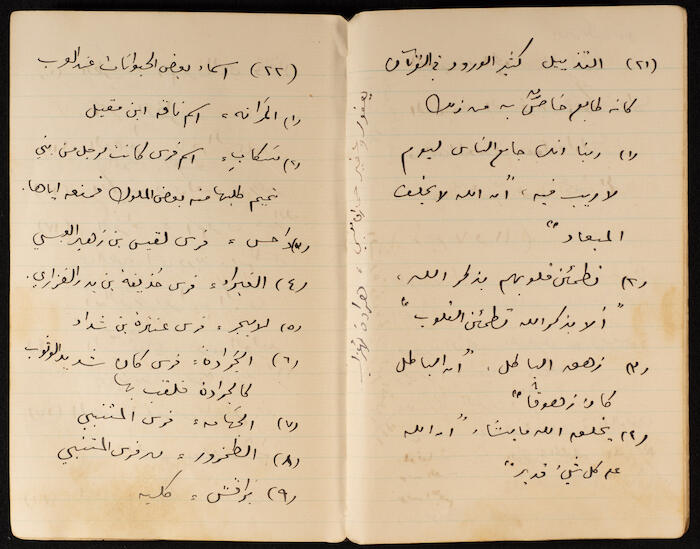 (٢١) التذييل كثير الورود في القرآن
كأنه طابع خاص به من ذلك
(١) ربنا إنك جامع الناس ليوم
لا ريب فيه، "إن الله لا يخلف
الميعاد"
(٢) تطمئن قلوبهم بذكر الله،
"ألا بذكر الله تطمئن القلوب"
(٣) زهق الباطل، "إن الباطل
كان زهوقًا"
(٤) يخلق الله ما يشاء "إن الله
على كل شيء قدير"
(٢٢) اسماء بعض الحيوانات عند العرب
(١) اسم ناقة ابن مقبل
(٢) سكابِ، اسم فرس كانت لرجل من بني
تميم طلبها منه بعض الملوك فمنعه اياها.
(٣) داحس، فرس لقيس بن زهير العبسي
(٤) الغبراء، فرس حذيفة بن بدر الفزاري.
(٥) الابجر، فرس عنترة بن شداد
(٦) الجرادة، فرس كان شديد الوثوب
كالجرادة فلقب بها
(٧) الجهامة، فرس المتنبي
(٨) الطخرور، مهر فرس المتنبي
(٩) براقش، كلبه